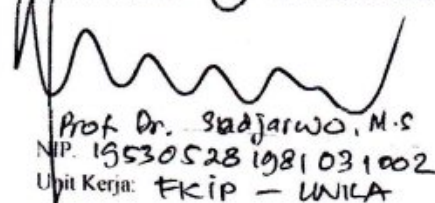 Prof Dr. Sudjarwo, M.S
NIP. 19530528 1981 03 1002
Unit Kerja: FKIP - UNILA